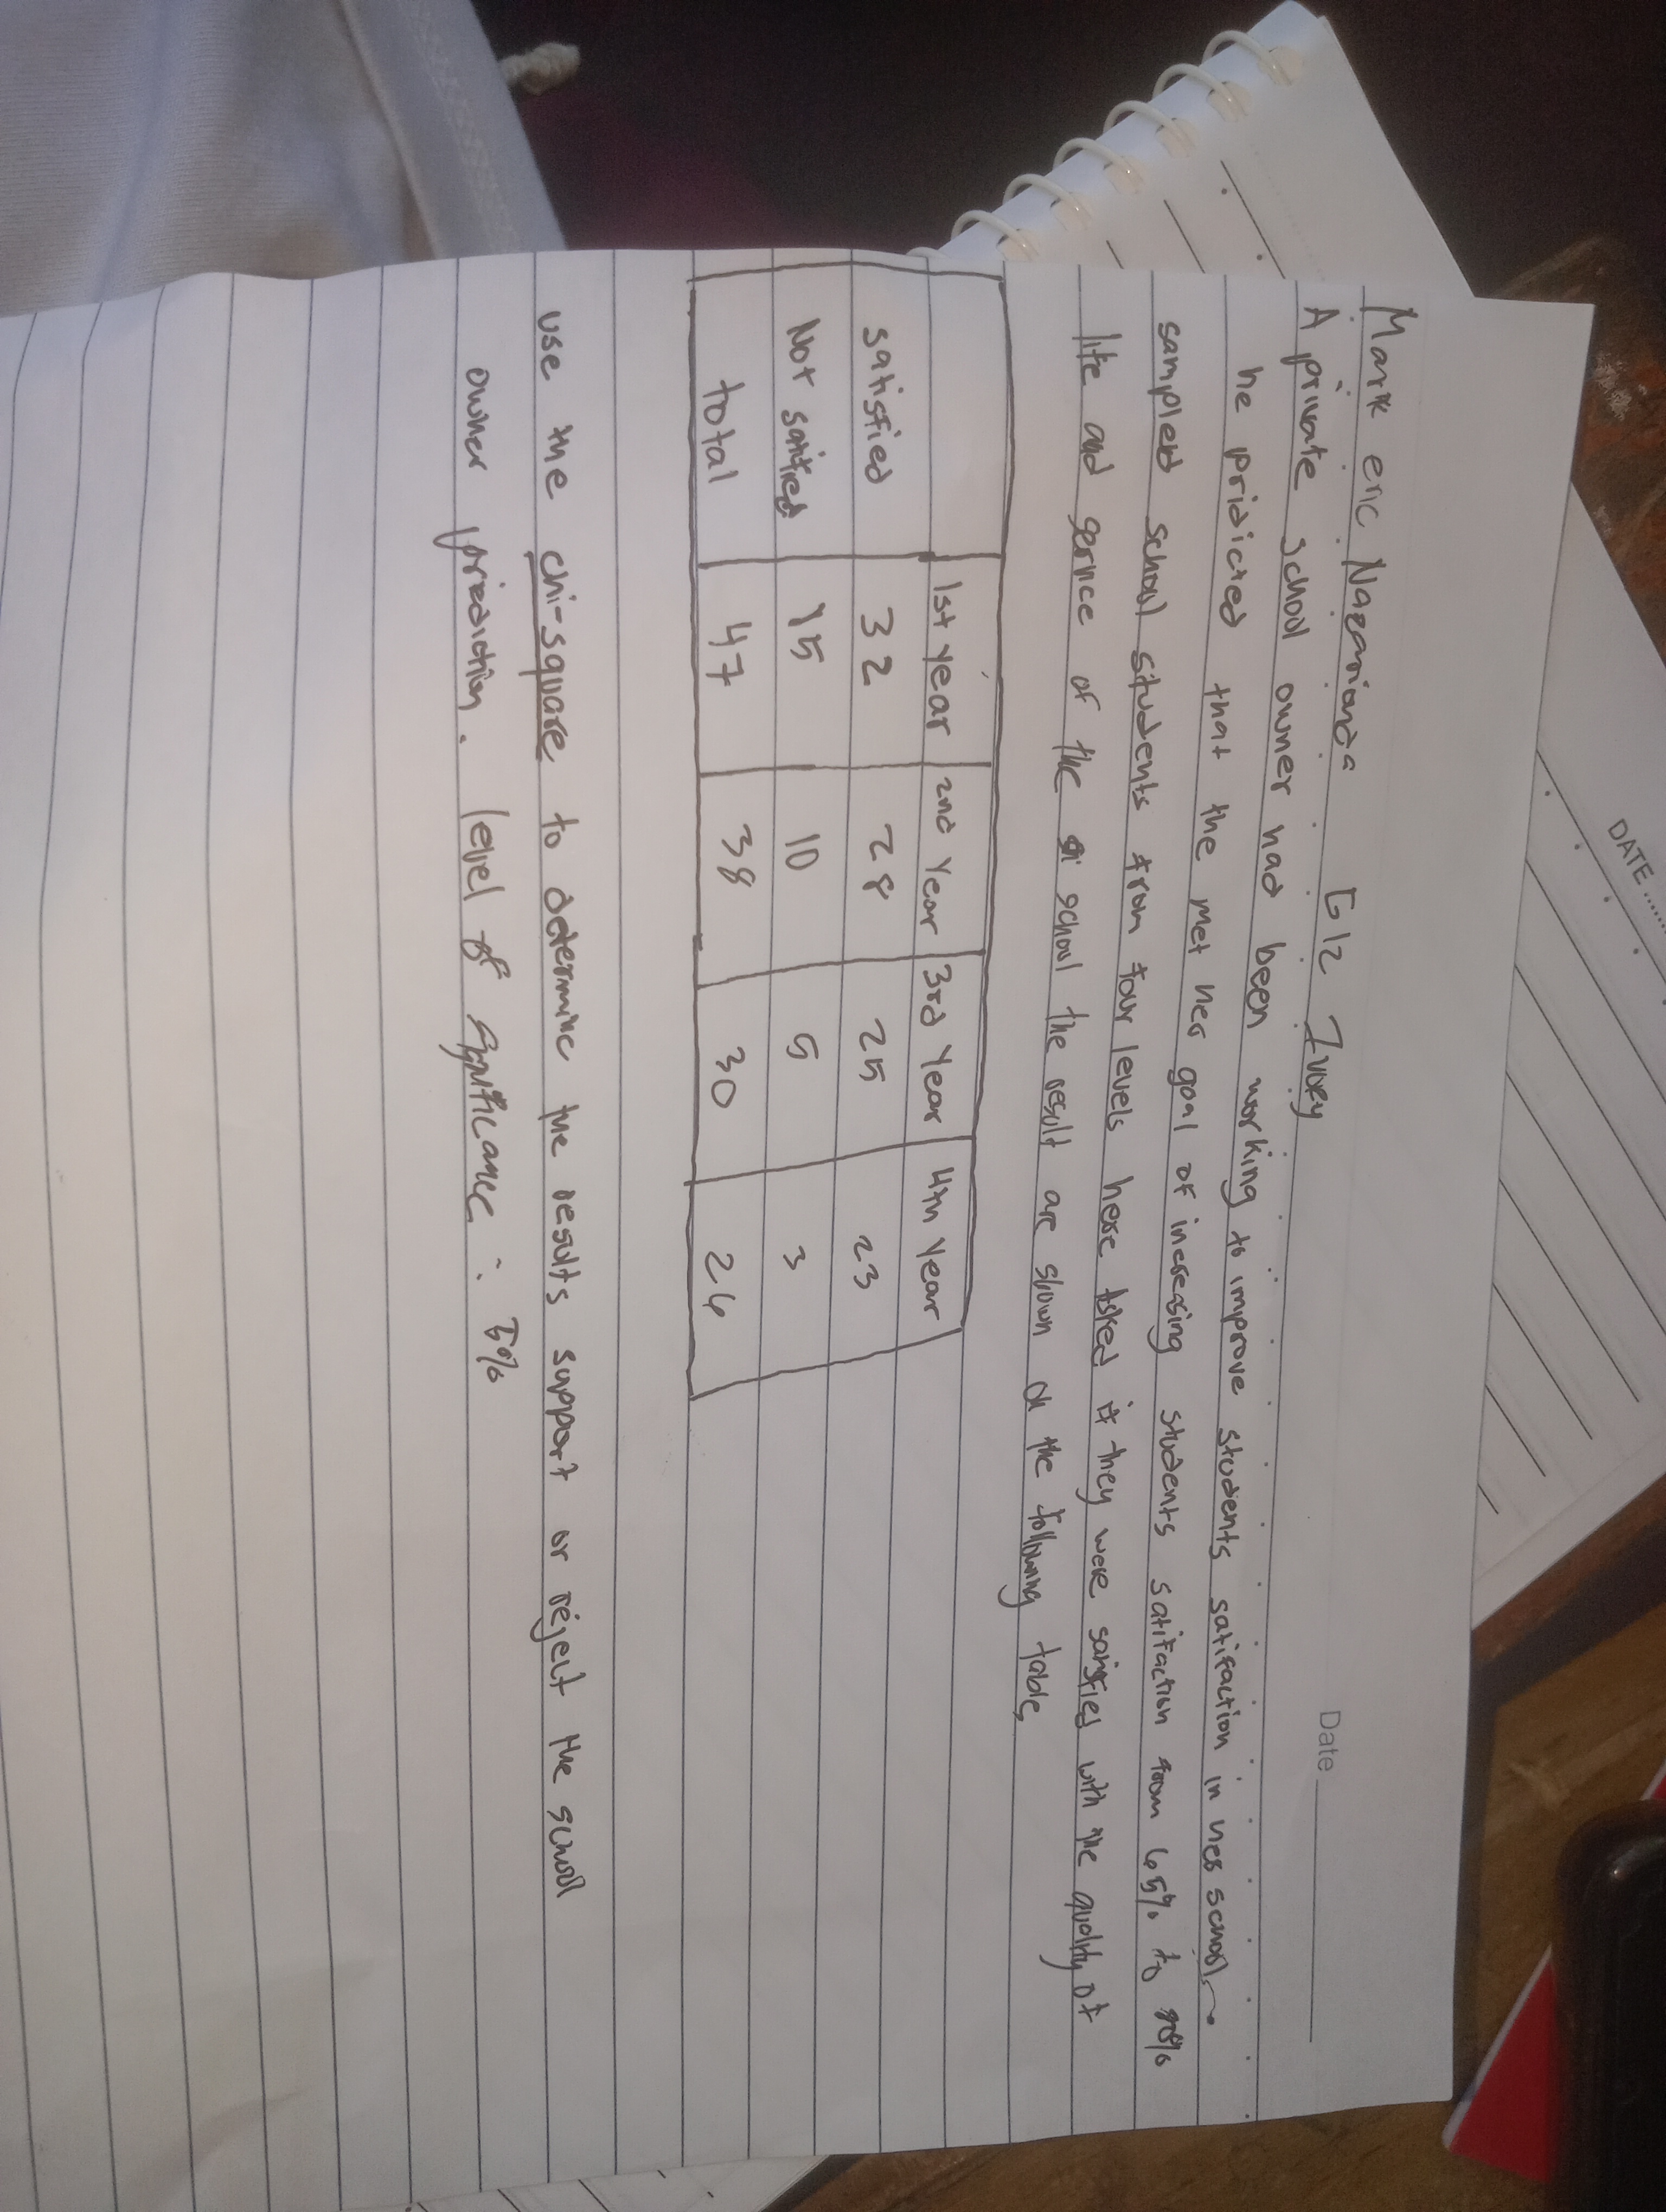 Date
Mark eric Nazarionda G12 Ivory
A private school owner had been working to improve students satifaction in her school.
he pridicted that the met her goal of increasing students satifaction from 65% to 90%
sampled school students from four levels here asked if they were satisfied with the quality of
life and service of the school the result are shown on the following table,
1st year 2nd Year 3rd Year 4th Year
satisfied 32 28 25 23
Not satified 15 10 5 3
total 47 38 30 26
use the chi-square to determine the results support or reject the school
owner prediction. level of significance : 5%
DATE